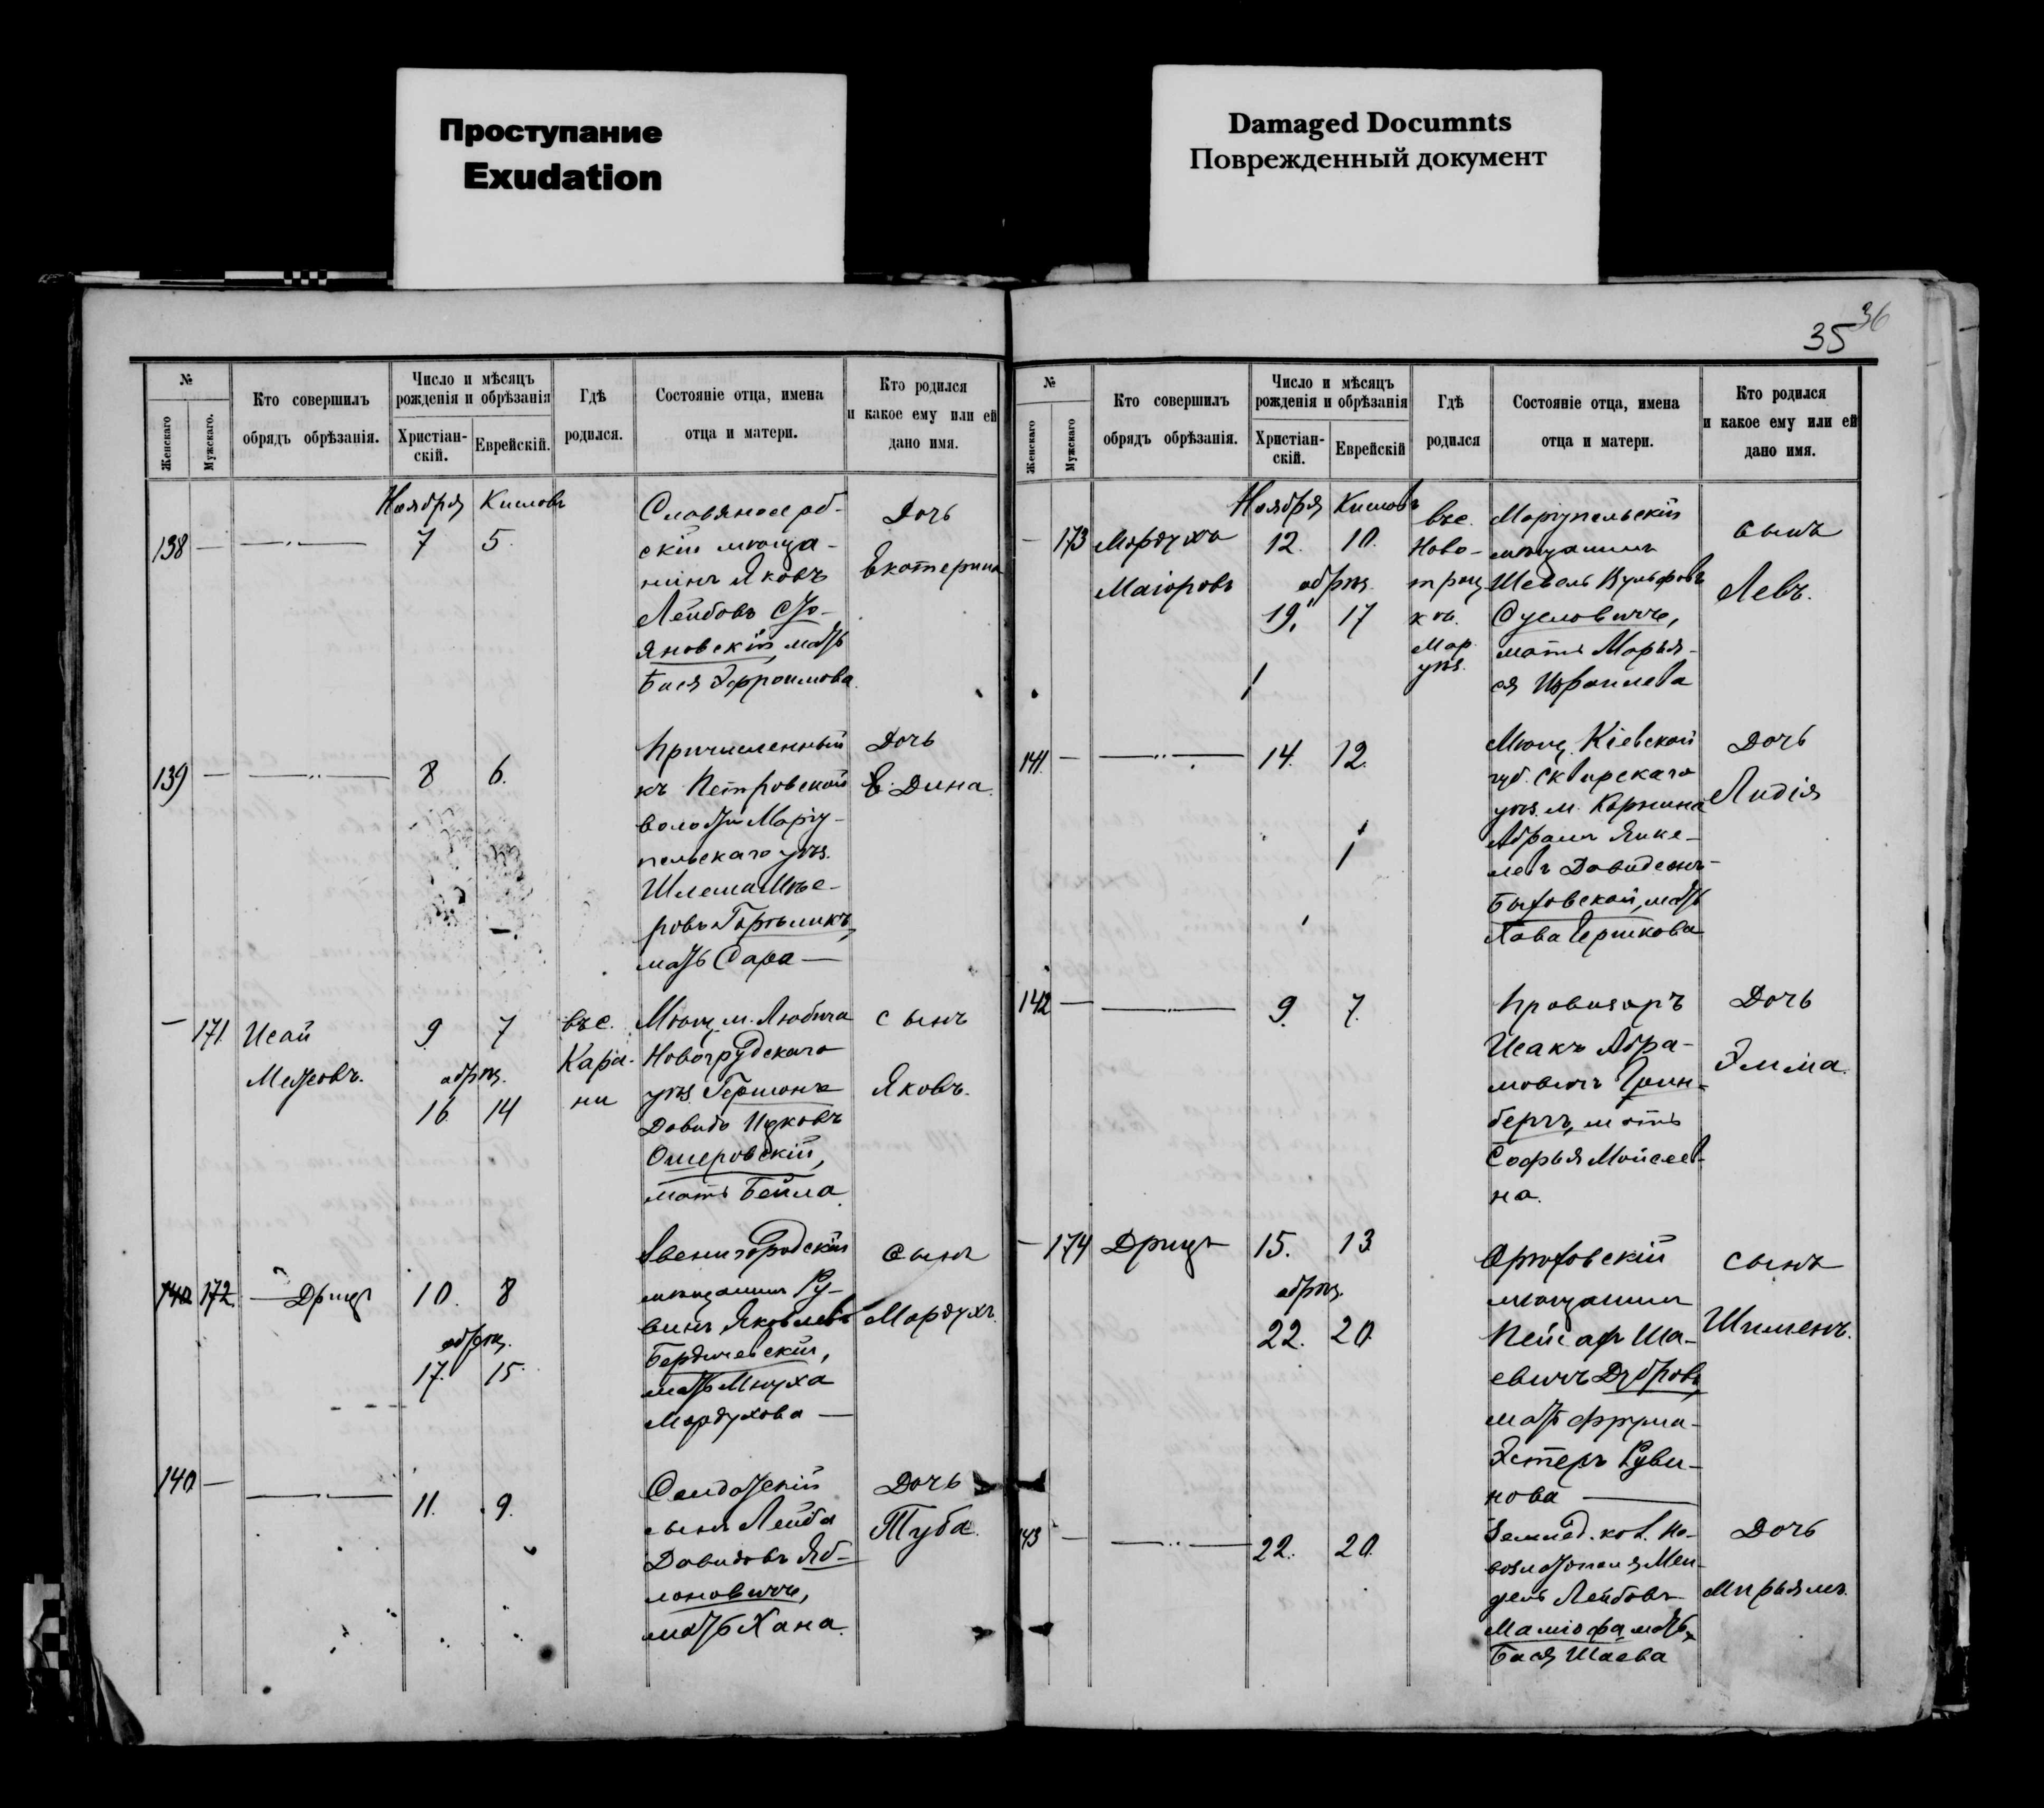 Проступание
Exudation
Damaged Documnts
Поврежденный документ
35 36
№
Женскаго
Мужскаго.
Кто совершилъ
обрядъ обрѣзанія.
Число и мѣсяцъ
рожденія и обрѣзанія
Христіан-
скій.
Еврейскій.
Гдѣ
родился.
Состояніе отца, имена
отца и матери.
Кто родился
и какое ему или ей
дано имя.
138 — —··— Ноября 7 Кислевъ 5.
Славяносерб-
скій мѣща-
нинъ Яковъ
Лейбовъ
яновскій, мать
Бася Эфроимова
Дочь
Екатерина
139 — —··— 8 6.
Причисленный
къ Петровской
волости Маріу-
польскаго уѣз.
Шлема Мее-
ровъ Горѣликъ,
мать Сара —
Дочь
Дина.
— 171. Исай
Межовъ.
9. 7
обрѣз.
16 14
въ с.
Кара-
ни
Мѣщ. м. Любча
Новогрудскаго
уѣз. Гершонъ
Давидъ Ицковъ
Ошеровскій,
мать Бейла
сынъ
Яковъ.
140 172. — Дрицъ
10. 8
обрѣз.
17. 15.
Звенигородскій
мѣщанинъ Ру-
винъ Яковлевъ
Бердичевскій,
мать Мнуха
Мордухова —
сынъ
Мордухъ.
140 — —··— 11. 9.
Солдатскій
сынъ Лейба
Давидовъ Яб-
лоновичъ,
мать Хана.
Дочь
Туба.
№
Женскаго
Мужскаго
Кто совершилъ
обрядъ обрѣзанія.
Число и мѣсяцъ
рожденія и обрѣзанія
Христіан-
скій.
Еврейскій
Гдѣ
родился
Состояніе отца, имена
отца и матери.
Кто родился
и какое ему или ей
дано имя.
— 173 Мордухъ
Маіоровъ
Ноября 12. Кислевъ 10.
обрѣз.
19. 17
въ с.
Ново-
троиц
комъ.
Мар.
уѣз.
Маріупольскій
мѣщанинъ
Шевель Вульфовъ
Сусловичъ,
мать Марья-
ся Израилева
сынъ
Левъ.
141. — —··— 14. 12.
Мѣщ. Кіевской
губ. Сквирскаго
уѣз. м. Корнина
Абрамъ Янке-
левъ Давидсонъ-
Быховской, мать
Хава Гершкова
Дочь
Лидія
142 — —··— 9. 7.
Провизоръ
Исакъ Абра-
мовичъ Грин-
бергъ, мать
Софья Моисеев-
на.
Дочь
Эмма.
— 174 Дрицъ
15. 13
обрѣз.
22. 20.
Орѣховскій
мѣщанинъ
Пейсахъ Ша-
евичъ Дубровъ,
мать Фрума-
Эстеръ Руви-
нова —
сынъ
Шименъ.
143 — —··— 22. 20.
Землед. кол. Но-
возлатополя Мен-
дель Лейбовъ
мать
Бася Шаева
Дочь
Мирьямъ.